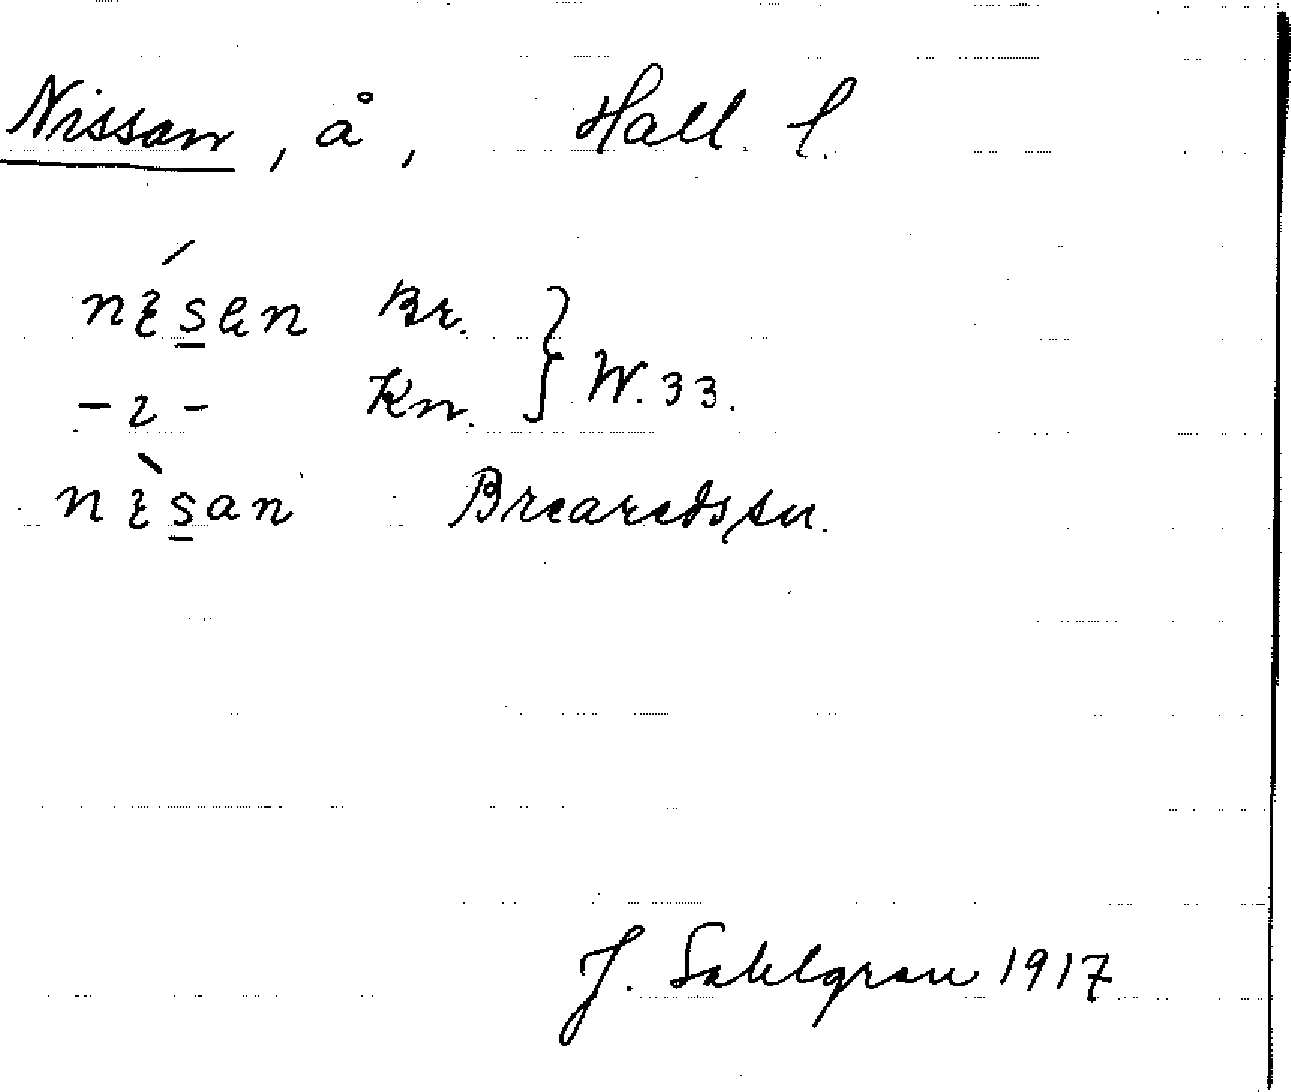 Nissan, å, Hall. l.
nɩ́s̲ən Br.
-ɩ- Kn. } W. 33.
nɩ̀s̲an Breareds sn.
J. Sahlgren 1917